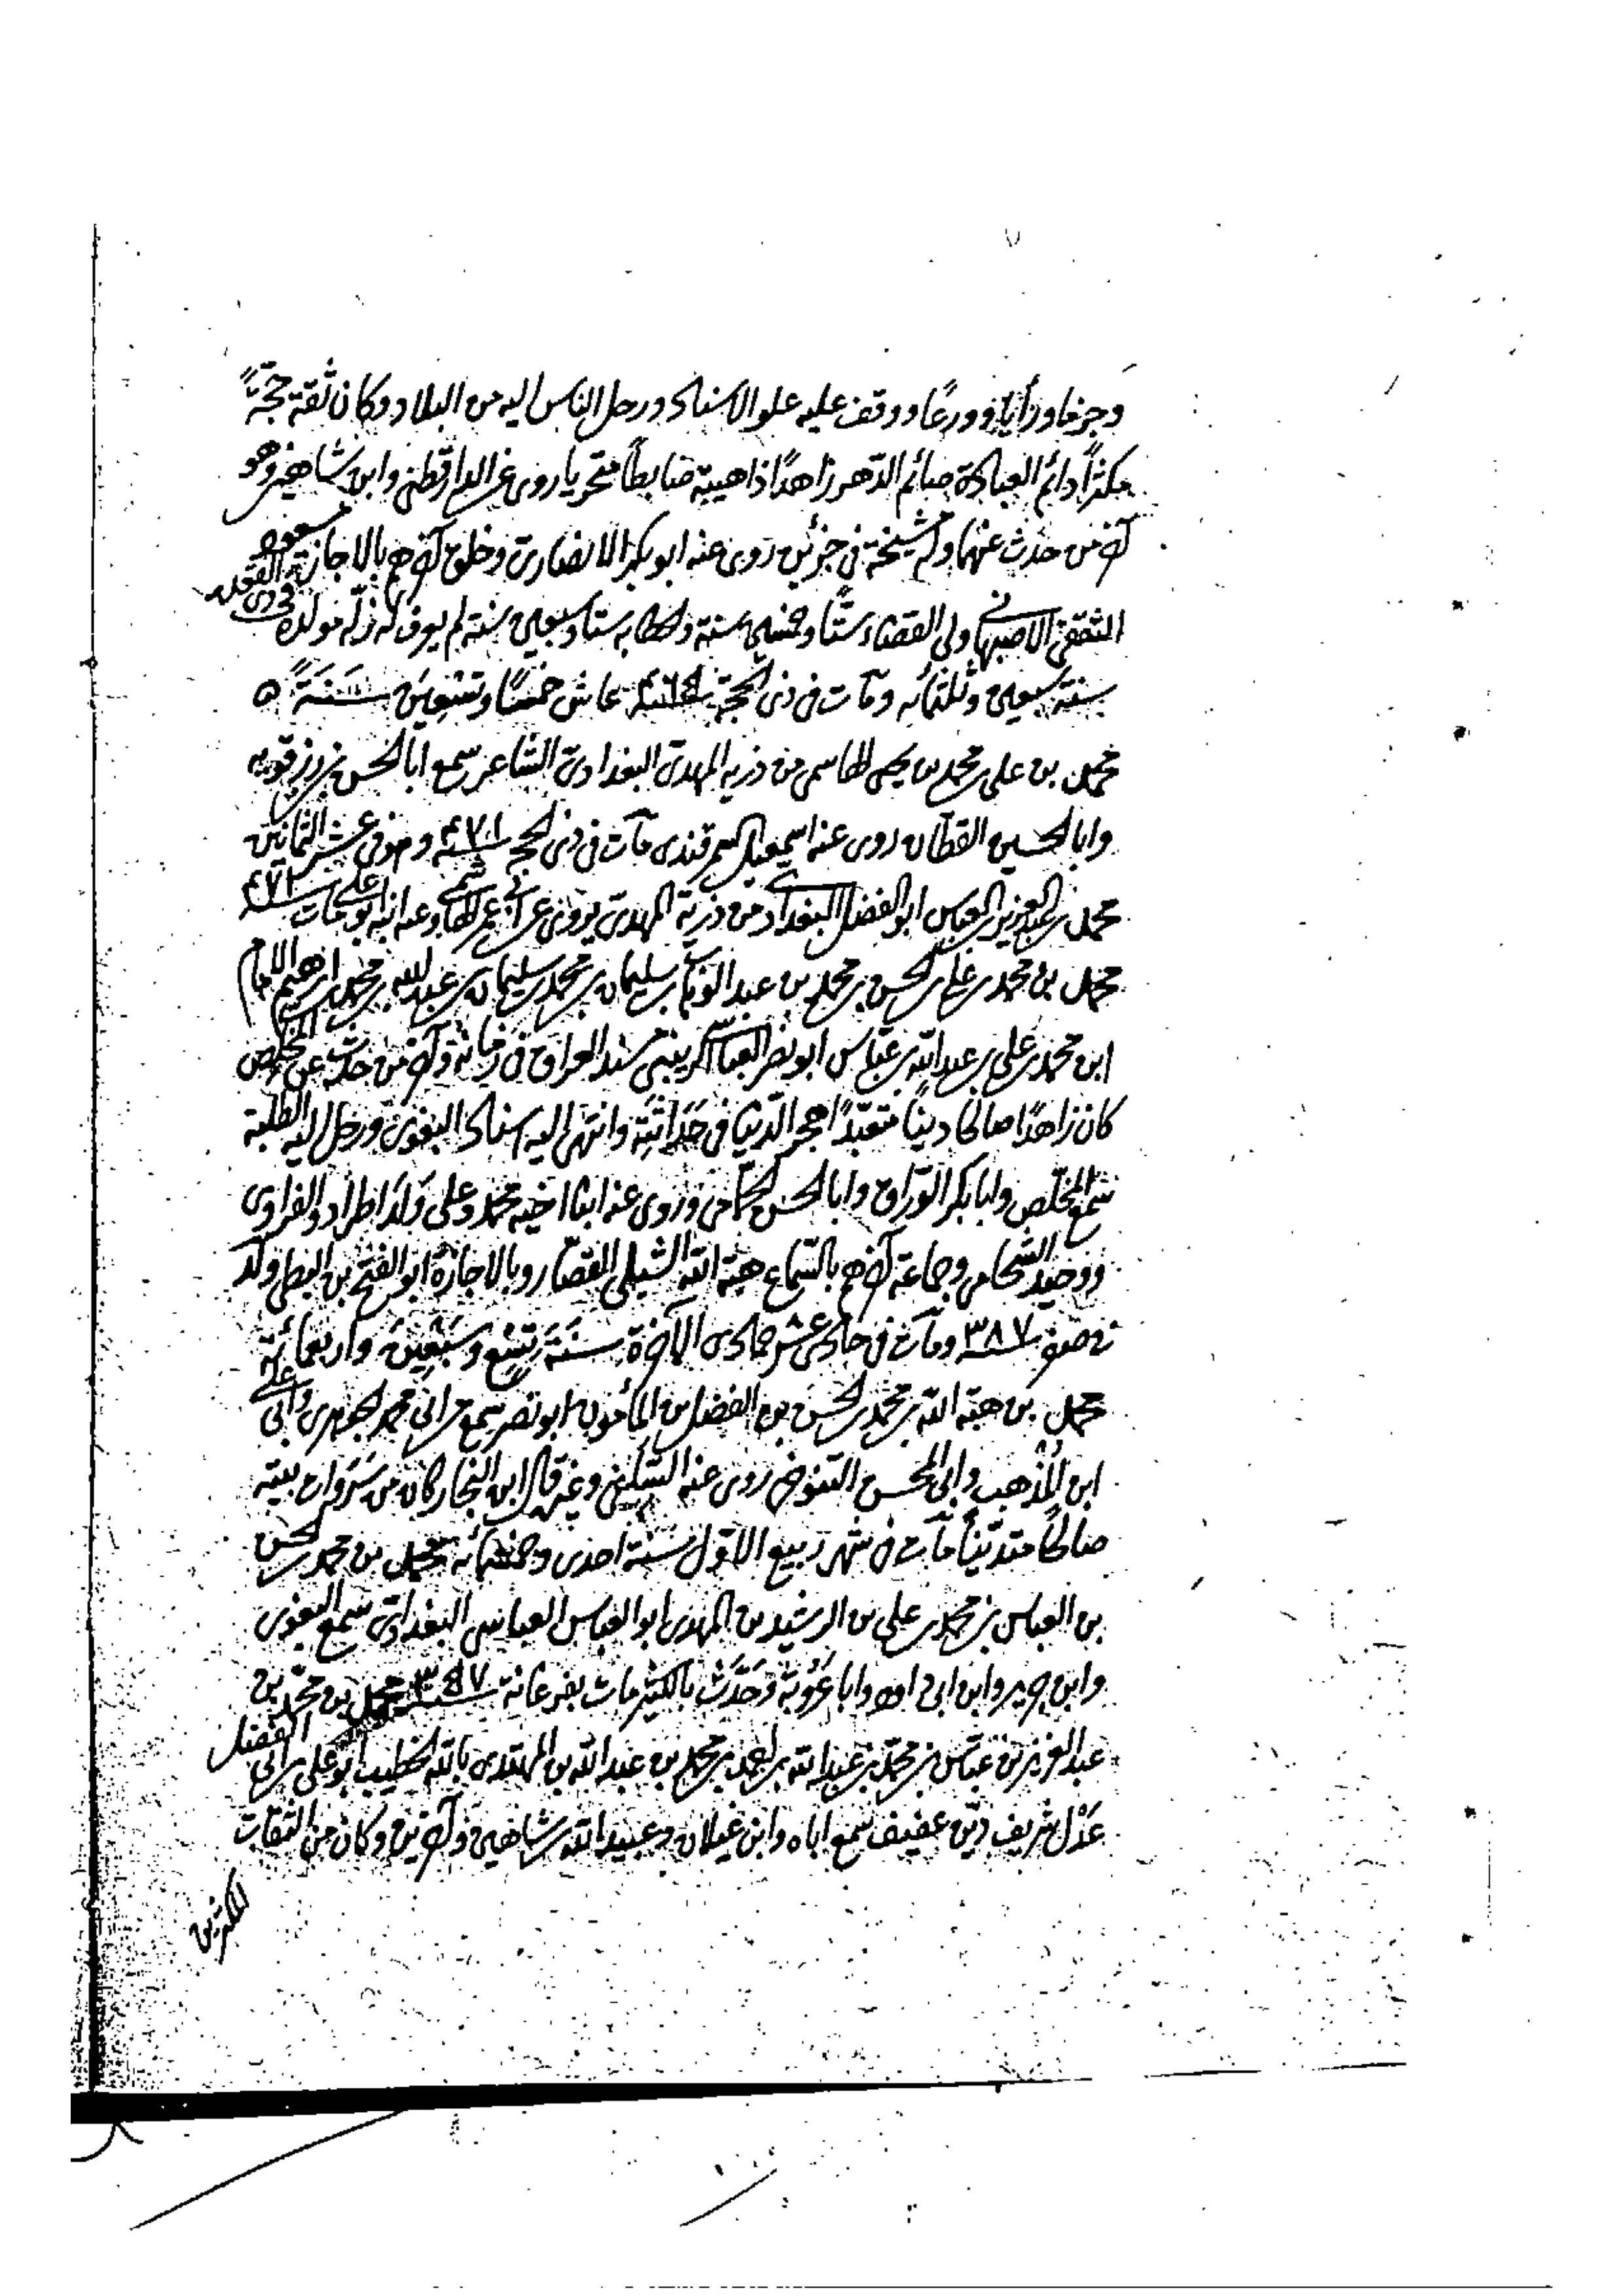 وحزما ورأيا وورعًا ووقف عليه علو الاسناد ورحل الناس اليه من البلاد وكان ثقة حجةً
مكثراً دائم العبادة صائم الدهر زاهدًا ذا هيبة ضابطاً متحريا روى عن الدارقطنى وابن شاهين وهو
آخر من حدث عنهما وله مشيخة فى جزئين روى عنه ابو بكر الانصارى وخلق آخرهم بالاجازة مسعود
الثقفى الاصبهانى ولى القضاء ستًّا وخمسين سنة والخطابة ستا وسبعين سنة لم يعرف له زلّة مولده فى ذى القعدة
سنة سبعين وثلثمائه ومات فى ذى الحجة عاش خمسًا وتسعين سَنَةً ٥
محمد بن على بن محمد بن يحيى الهاشمى من ذرية المهدى البغدادى الشاعر سمع ابا الحسن بن رزقويه
وابا الحسين القطان روى عنه اسمعيل السمرقندى مات فى ذى الحجة سنة ٤٧١ وهو فى عشر الثمانين
محمد بن عبد العزيز بن العباس ابو الفضل البغدادى من ذرية المهدى يروى عن ابى عمر الهاشمى وعنه ابنه ابو على مات سنة ٤٧٢
محمد بن محمد بن على بن الحسن بن محمد بن عبد الوهاب بن سليمان بن محمد بن سليمان بن عبد الله بن محمد بن ابرهيم الامام
ابن محمد بن على بن عبد الله بن عباس ابو نصر العباسى الزينبى مسند العراق فى زمانه وآخر من حدث عن المخلص
كان زاهدًا صالحًا دينًا متعبدًا هجر الدنيا فى حَدَاثَتِه وانتهى اليه اسناد البغوى ورحل اليه الطلبة
سمع المخلّص وابا بكر الورّاق وابا الحسن الحمامى وروى عنه ابنا اخيه محمد وعلى وَلَدَا طراد والفراوى
ووجيه الشحامى وجماعة آخرهم بالسّماع هبة الله الشبلى القصّار وبالاجازة ابو الفتح بن البطى ولد
فى صفر سنة ٣٨٧ ومات فى حادى عشر جمادى الآخرة سَنَةَ تِسْعٍ وسَبْعِينَ واربعمائة
محمد بن هبة الله بن محمد بن الحسن بن الفضل بن المأمون ابو نصر سمع من ابى محمد الجوهرى وابى على
ابن المُذْهِب وابى المحسن التنوخى روى عنه السِّلَفى وغيره قال ابن النجار كان من سَرَوات بيته
صالحًا متديّناً مات فى شهر ربيع الاوّل سنة احدى وخمسمائه محمد بن محمد بن الحسن
بن العباس بن محمد بن على بن الرشيد بن المهدى ابو العباس العباسى البغدادى سمع البغوى
وابن جرير وابن ابى داود وابا عَرُوبَة وَحَدَّث بالكثير مات بفرغانة محمد بن محمد بن
عبد العزيز بن عباس بن محمد بن عبد الله بن احمد بن محمد بن عبد الله بن المهتدى بالله الخطيب ابو على بن ابى الفضل
عَدْل شريف ديّن عفيف سمع اباه وابن غيلان وعبيد الله بن شاهين وآخرين وكان من الثقات
المكثرين